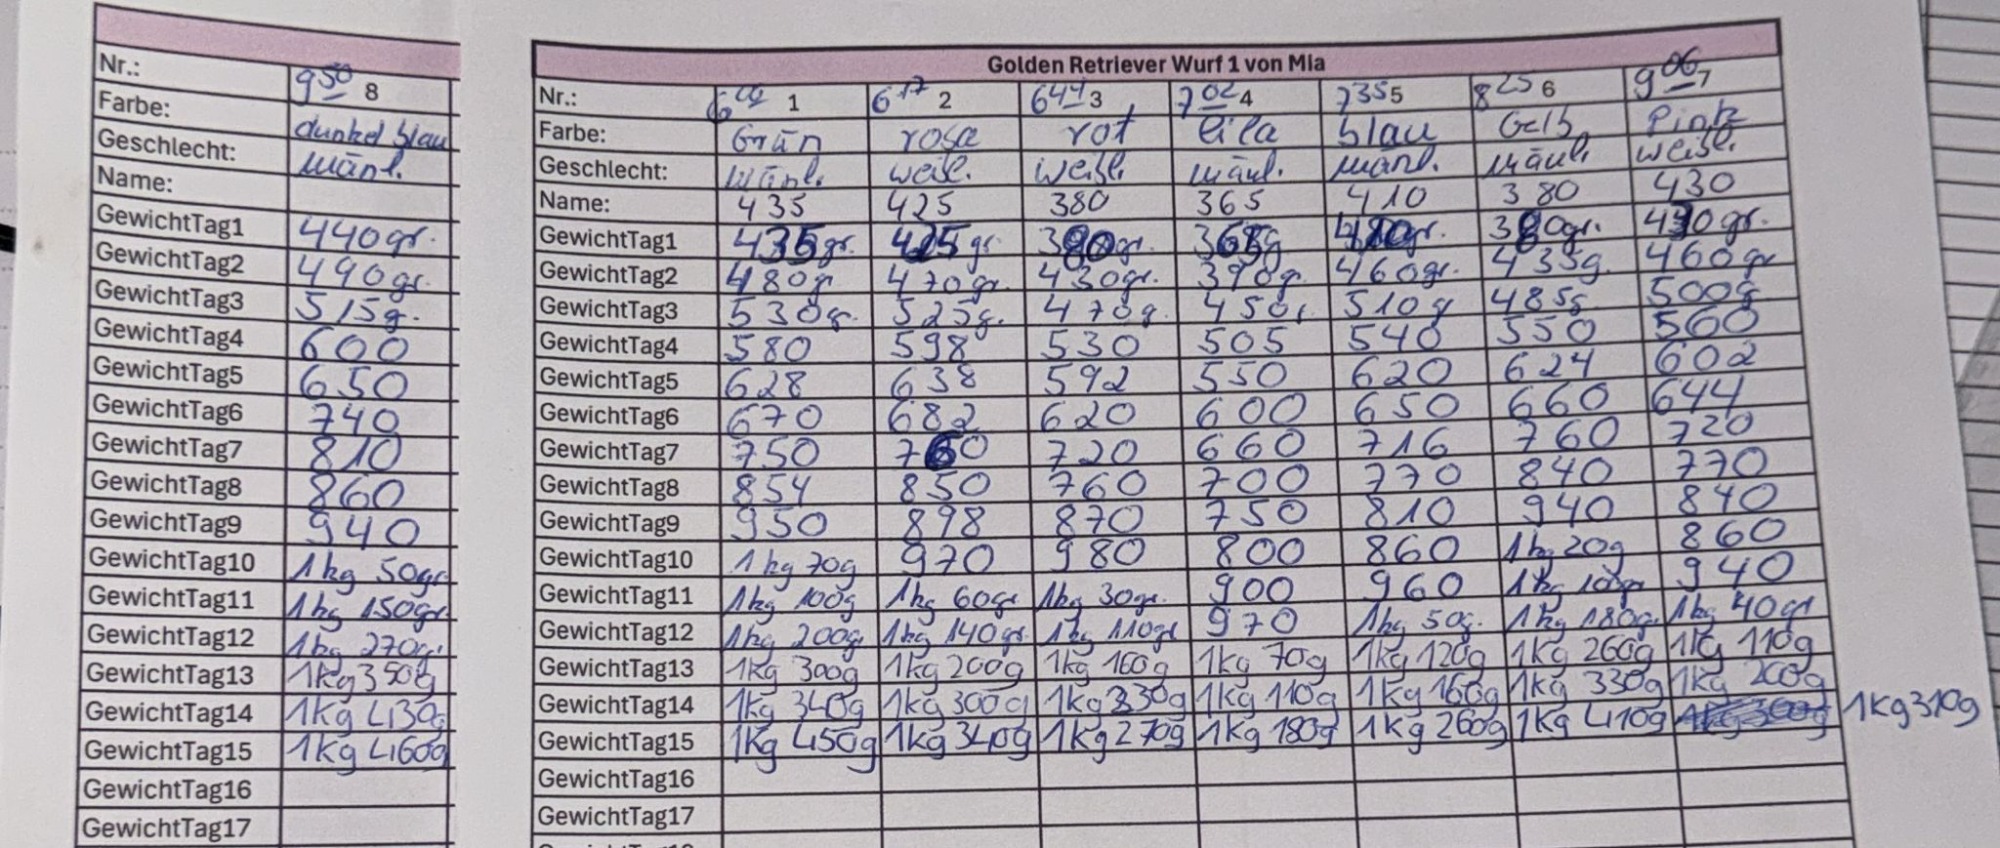 Nr.: 9 50 8
Farbe: dunkel blau
Geschlecht: männl.
Name:
GewichtTag1 440gr.
GewichtTag2 490gr.
GewichtTag3 515g.
GewichtTag4 600
GewichtTag5 650
GewichtTag6 740
GewichtTag7 810
GewichtTag8 860
GewichtTag9 940
GewichtTag10 1kg 50gr
GewichtTag11 1kg 150gr
GewichtTag12 1kg 270gr.
GewichtTag13 1kg 350g
GewichtTag14 1kg 430g
GewichtTag15 1kg 460g
GewichtTag16
GewichtTag17
Golden Retriever Wurf 1 von Mia
Nr.: 1 6 17 2 6 44 3 7 02 4 7 35 5 8 25 6 9 06 7
Farbe: Grün rosa rot lila blau Gelb Pink
Geschlecht: männl. weibl. weibl. männl. männl. männl. weibl.
Name: 435 425 380 365 410 380 430
GewichtTag1 435gr. 425gr. 380gr. 365g 410gr. 380gr. 430gr.
GewichtTag2 480gr. 470gr. 430gr. 390g. 460gr. 435g. 460gr
GewichtTag3 530gr. 525g. 470g. 450g. 510g 485g 500g
GewichtTag4 580 598 530 505 540 550 560
GewichtTag5 628 638 592 550 620 624 602
GewichtTag6 670 682 620 600 650 660 644
GewichtTag7 750 760 720 660 716 760 720
GewichtTag8 854 850 760 700 770 840 770
GewichtTag9 950 898 870 750 810 940 840
GewichtTag10 1kg 70g 970 980 800 860 1kg 20g 860
GewichtTag11 1kg 100g 1kg 60gr 1kg 30gr. 900 960 1kg 940
GewichtTag12 1kg 200g 1kg 140gr. 1kg 110gr 970 1kg 50g. 1kg 180g. 1kg 40gr
GewichtTag13 1kg 300g 1kg 200g 1kg 160g 1kg 70g 1kg 120g 1kg 260g 1kg 110g
GewichtTag14 1kg 340g 1kg 300g 1kg 230g 1kg 110g 1kg 160g 1kg 330g 1kg 200g
GewichtTag15 1kg 450g 1kg 340g 1kg 270g 1kg 180g 1kg 260g 1kg 410g 1kg 310g
GewichtTag16
GewichtTag17